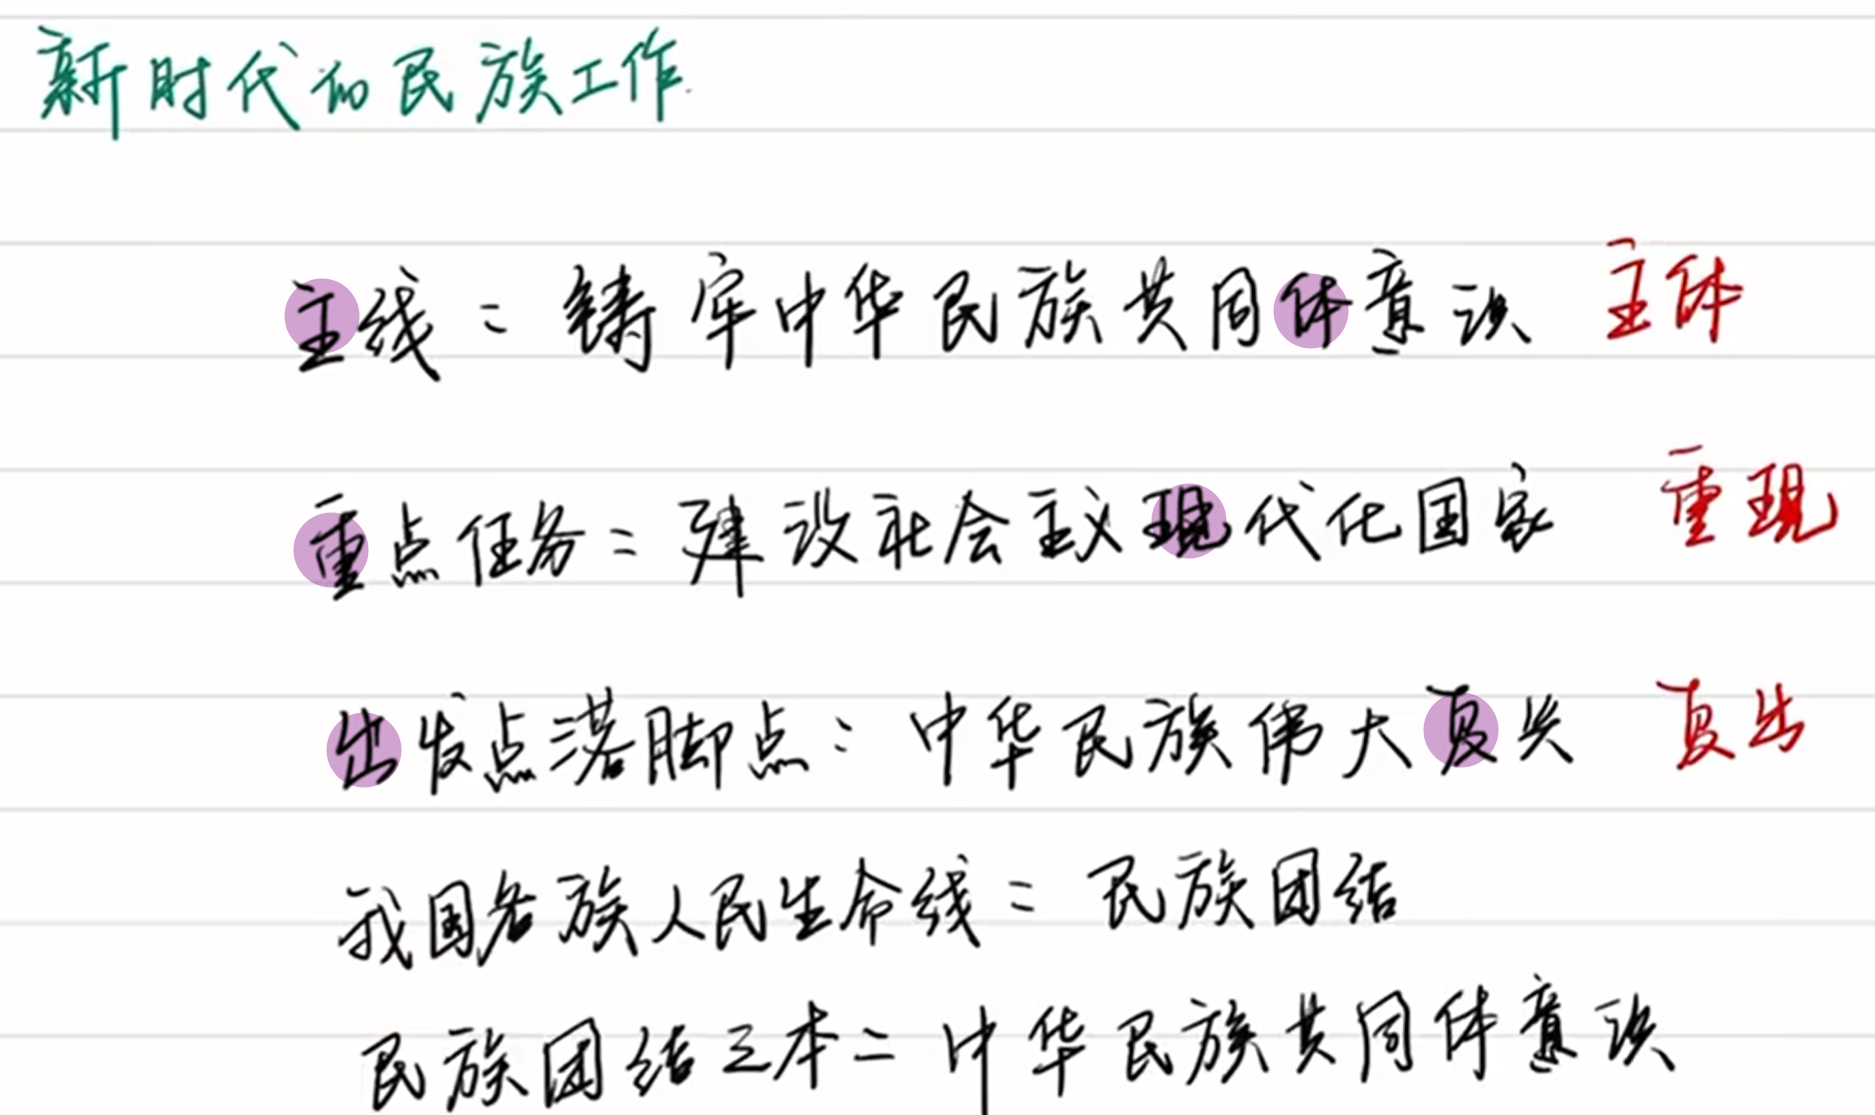 新时代的民族工作
主线：铸牢中华民族共同体意识 主体
重点任务：建设社会主义现代化国家 重现
出发点落脚点：中华民族伟大复兴 复出
我国各族人民生命线：民族团结
民族团结之本：中华民族共同体意识